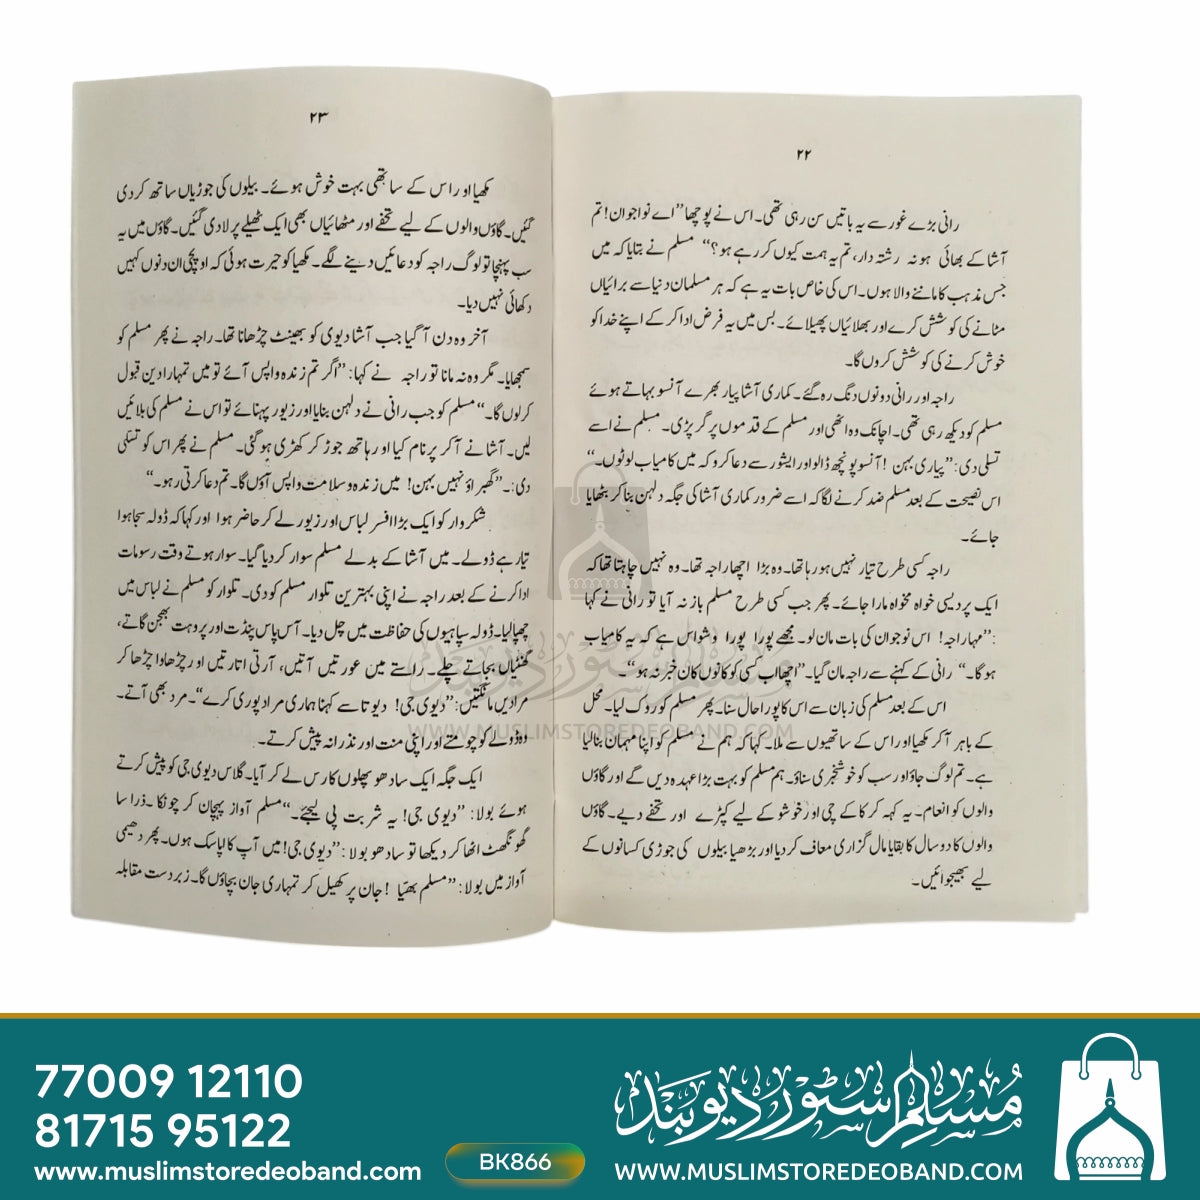 ۲۲
رانی بڑے غور سے یہ باتیں سن رہی تھی۔ اس نے پوچھا ”اے نوجوان! تم
آشا کے بھائی ہو نہ رشتہ دار، تم یہ ہمت کیوں کر رہے ہو؟“ مسلم نے بتایا کہ میں
جس مذہب کا ماننے والا ہوں۔ اس کی خاص بات یہ ہے کہ ہر مسلمان دنیا سے برائیاں
مٹانے کی کوشش کرے اور بھلائیاں پھیلائے۔ بس میں یہ فرض ادا کر کے اپنے خدا کو
خوش کرنے کی کوشش کروں گا۔
راجہ اور رانی دونوں دنگ رہ گئے۔ کماری آشا پیار بھرے آنسو بہاتے ہوئے
مسلم کو دیکھ رہی تھی۔ اچانک وہ اٹھی اور مسلم کے قدموں پر گر پڑی۔ مسلم نے اسے
تسلی دی: ”پیاری بہن! آنسو پونچھ ڈالو اور ایشور سے دعا کرو کہ میں کامیاب لوٹوں۔“
اس نصیحت کے بعد مسلم ضد کرنے لگا کہ اسے ضرور کماری آشا کی جگہ دلہن بنا کر بٹھایا
جائے۔
راجہ کسی طرح تیار نہیں ہو رہا تھا۔ وہ بڑا اچھا راجہ تھا۔ وہ نہیں چاہتا تھا کہ
ایک پردیسی خواہ مخواہ مارا جائے۔ پھر جب کسی طرح مسلم باز نہ آیا تو رانی نے کہا
: ”مہاراجہ! اس نوجوان کی بات مان لو۔ مجھے پورا پورا وشواس ہے کہ یہ کامیاب
ہو گا۔“ رانی کے کہنے سے راجہ مان گیا۔ ”اچھا اب کسی کو کانوں کان خبر نہ ہو“۔
اس کے بعد مسلم کی زبان سے اس کا پورا حال سنا۔ پھر مسلم کو روک لیا۔ محل
کے باہر آ کر مکھیا اور اس کے ساتھیوں سے ملا۔ کہا کہ ہم نے مسلم کو اپنا مہمان بنا لیا
ہے۔ تم لوگ جاؤ اور سب کو خوشخبری سناؤ۔ ہم مسلم کو بہت بڑا عہدہ دیں گے اور گاؤں
والوں کو انعام۔ یہ کہہ کر کاکے چی اور خوشو کے لیے کپڑے اور تحفے دیے۔ گاؤں
والوں کا دو سال کا بقایا مال گزاری معاف کر دیا اور بڑھیا بیلوں کی جوڑی کسانوں کے
لیے بھیجوائیں۔
۲۳
مکھیا اور اس کے ساتھی بہت خوش ہوئے۔ بیلوں کی جوڑیاں ساتھ کر دی
گئیں۔ گاؤں والوں کے لیے تحفے اور مٹھائیاں بھی ایک ٹھیلے پر لا دی گئیں۔ گاؤں میں یہ
سب پہنچا تو لوگ راجہ کو دعائیں دینے لگے۔ مکھیا کو حیرت ہوئی کہ اوپچی ان دنوں کہیں
دکھائی نہیں دیا۔
آخر وہ دن آ گیا جب آشا دیوی کو بھینٹ چڑھانا تھا۔ راجہ نے پھر مسلم کو
سمجھایا۔ مگر وہ نہ مانا تو راجہ نے کہا: ”اگر تم زندہ واپس آئے تو میں تمہارا دین قبول
کر لوں گا۔“ مسلم کو جب رانی نے دلہن بنایا اور زیور پہنائے تو اس نے مسلم کی بلائیں
لیں۔ آشا نے آ کر پرنام کیا اور ہاتھ جوڑ کر کھڑی ہو گئی۔ مسلم نے پھر اس کو تسلی
دی:۔ ”گھبراؤ نہیں بہن! میں زندہ و سلامت واپس آؤں گا۔ تم دعا کرتی رہو۔“
شکروار کو ایک بڑا افسر لباس اور زیور لے کر حاضر ہوا اور کہا کہ ڈولہ سجا ہوا
تیار ہے ڈولے۔ میں آشا کے بدلے مسلم سوار کر دیا گیا۔ سوار ہوتے وقت رسومات
ادا کرنے کے بعد راجہ نے اپنی بہترین تلوار مسلم کو دی۔ تلوار کو مسلم نے لباس میں
چھپا لیا۔ ڈولہ سپاہیوں کی حفاظت میں چل دیا۔ آس پاس پنڈت اور پروہت بھجن گاتے،
گھنٹیاں بجاتے چلے۔ راستے میں عورتیں آتیں، آرتی اتارتیں اور چڑھاوا چڑھا کر
مرادیں مانگتیں: ”دیوی جی! دیوتا سے کہنا ہماری مراد پوری کرے“۔ مرد بھی آتے۔
وہ ڈولے کو چومتے اور اپنی منت اور نذرانہ پیش کرتے۔
ایک جگہ ایک سادھو پھلوں کا رس لے کر آیا۔ گلاس دیوی جی کو پیش کرتے
ہوئے بولا: ”دیوی جی! یہ شربت پی لیجئے۔“ مسلم آواز پہچان کر چونکا۔ ذرا سا
گھونگھٹ اٹھا کر دیکھا تو سادھو بولا: ”دیوی جی! میں آپ کا اپاسک ہوں۔ پھر دھیمی
آواز میں بولا: ”مسلم بھیّا! جان پر کھیل کر تمہاری جان بچاؤں گا۔ زبردست مقابلہ
مسلم سٹور دیوبند
WWW.MUSLIMSTOREDEOBAND.COM
77009 12110
81715 95122
www.muslimstoredeoband.com
BK866
مسلم سٹور دیوبند
WWW.MUSLIMSTOREDEOBAND.COM